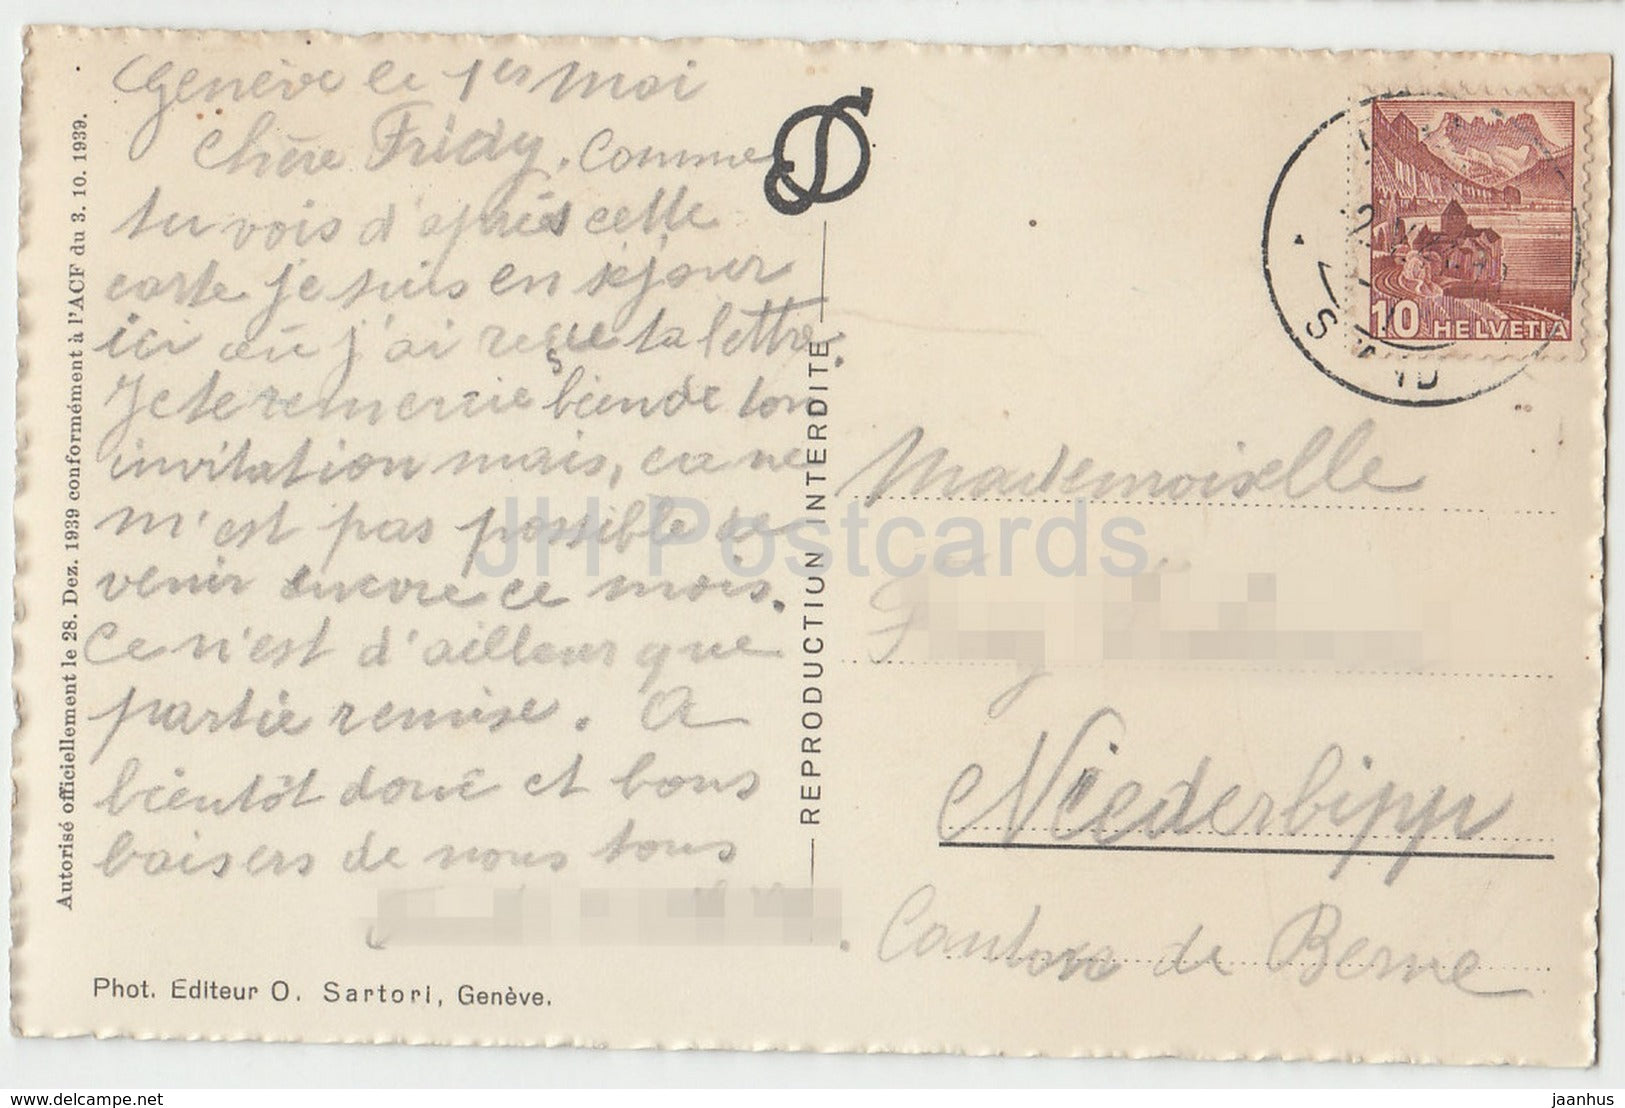 Genève le 1er mai
Chère Fridy. Comme
tu vois d'après cette
carte je suis en séjour
ici où j'ai reçue ta lettre.
Je te remercie bien de ton
invitation mais, ca ne
m'est pas possible de
venir encore ce mois.
Ce n'est d'ailleurs que
partie remise. A
bientôt donc et bons
baisers de nous tous
Autorisé officiellement le 28. Dez. 1939 conformément à l'ACF du 3. 10. 1939.
Phot. Editeur O. Sartori, Genève.
REPRODUCTION INTERDITE
10 HELVETIA
Mademoiselle
Niederbipp
Canton de Berne
JH Postcards
delcampe.net
jaanhus